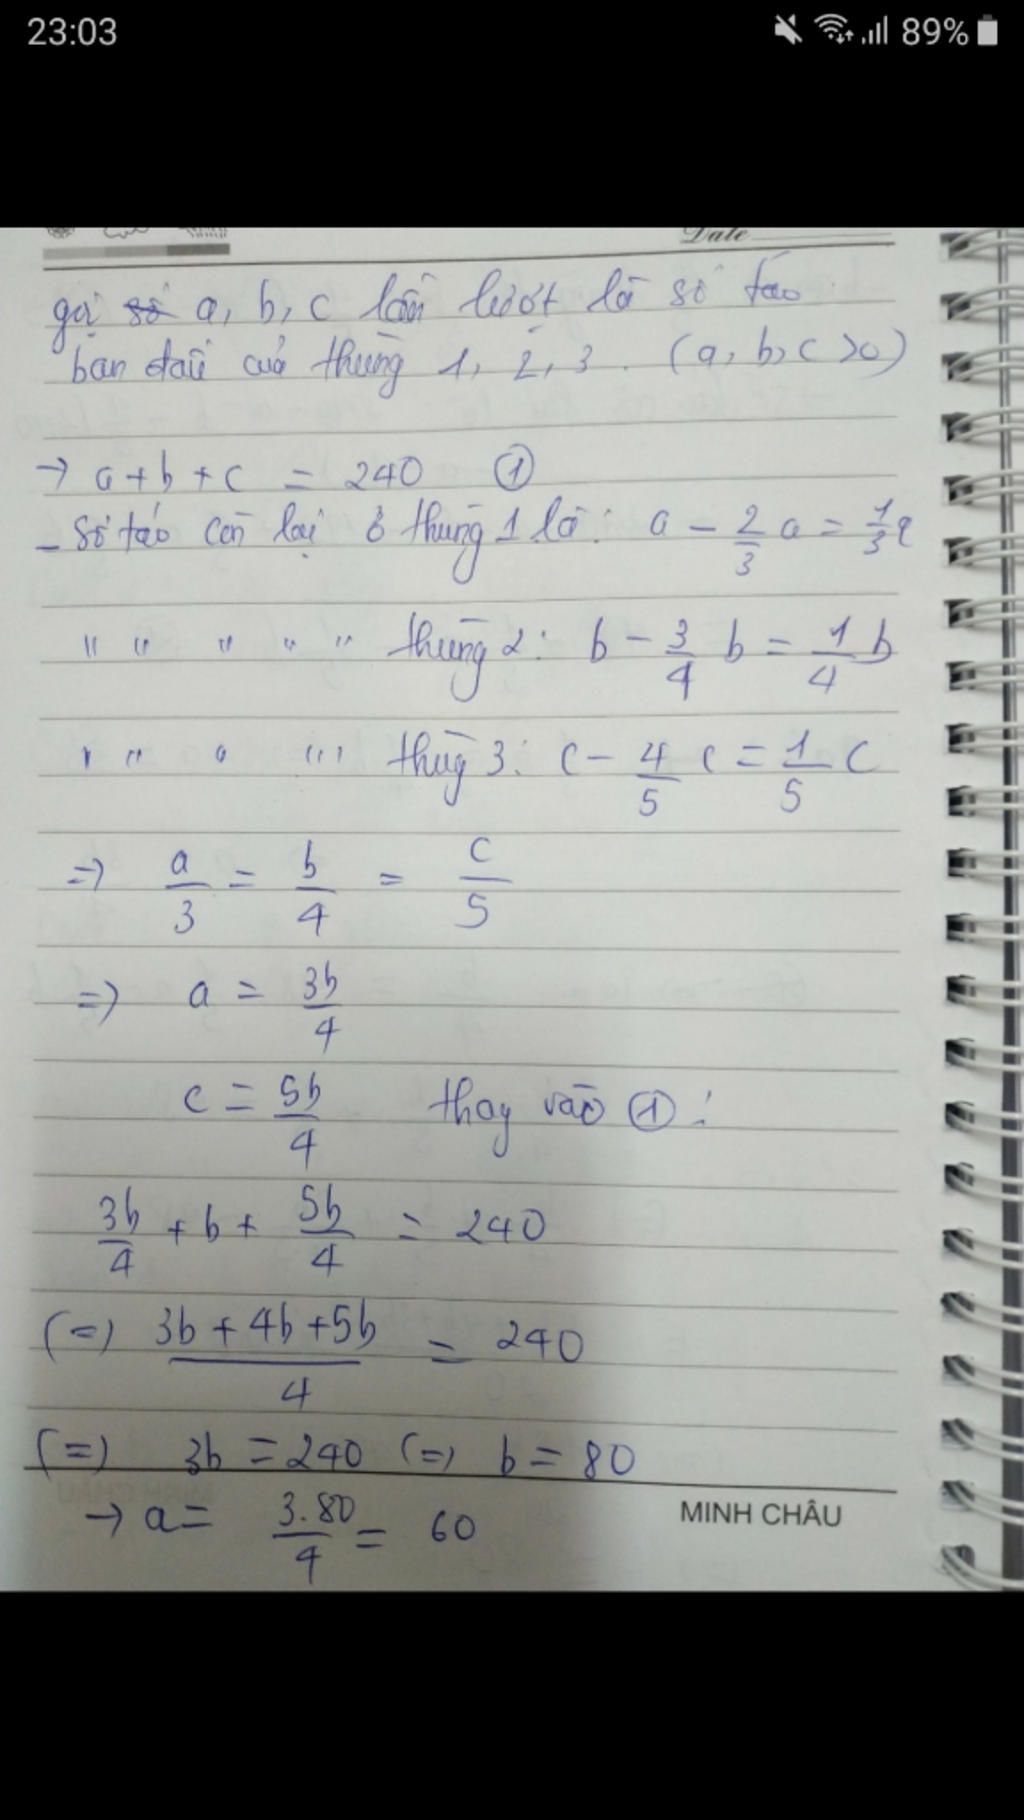 23:03 89%
Date
gọi số a, b, c lần lượt là số táo
ban đầu của thùng 1, 2, 3. (a, b, c >0)
→ a + b + c = 240 ①
- Số táo còn lại ở thùng 1 là: a - 2/3 a = 1/3 a
" " " " " thùng 2: b - 3/4 b = 1/4 b
" " " " thùg 3: c - 4/5 c = 1/5 c
=> a/3 = b/4 = c/5
=> a = 3b/4
c = 5b/4 thay vào ①:
3b/4 + b + 5b/4 = 240
(=) (3b + 4b + 5b)/4 = 240
(=) 3b = 240 (=) b = 80
→ a = 3.80/4 = 60
MINH CHÂU